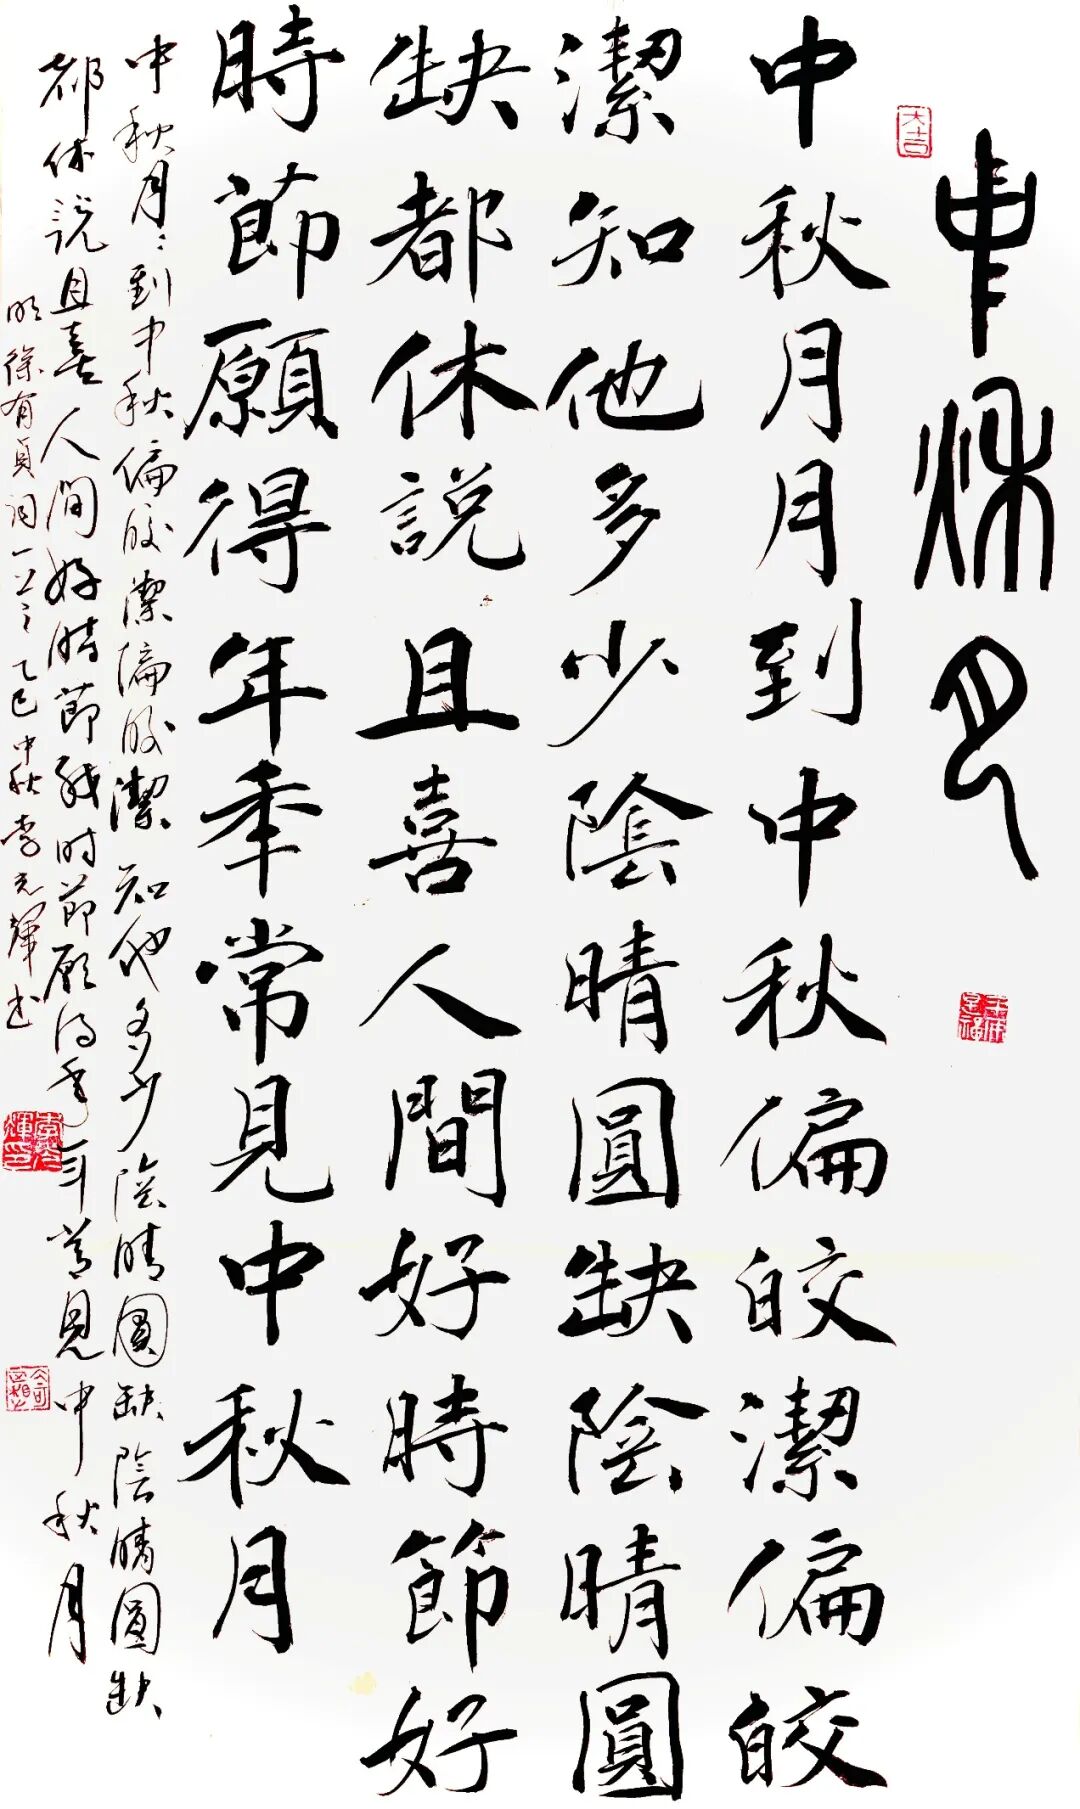 中秋月
大吉
中秋月月到中秋偏皎潔偏皎
潔知他多少陰晴圓缺陰晴圓
缺都休説且喜人間好時節好
時節願得年秊常見中秋月
中秋月〻到中秋偏皎潔偏皎潔知他多少陰晴圓缺陰晴圓缺
都休説且喜人间好時節好时節愿得年年常見中秋月
明徐有貞词一首乙巳中秋李光輝书
李光輝印